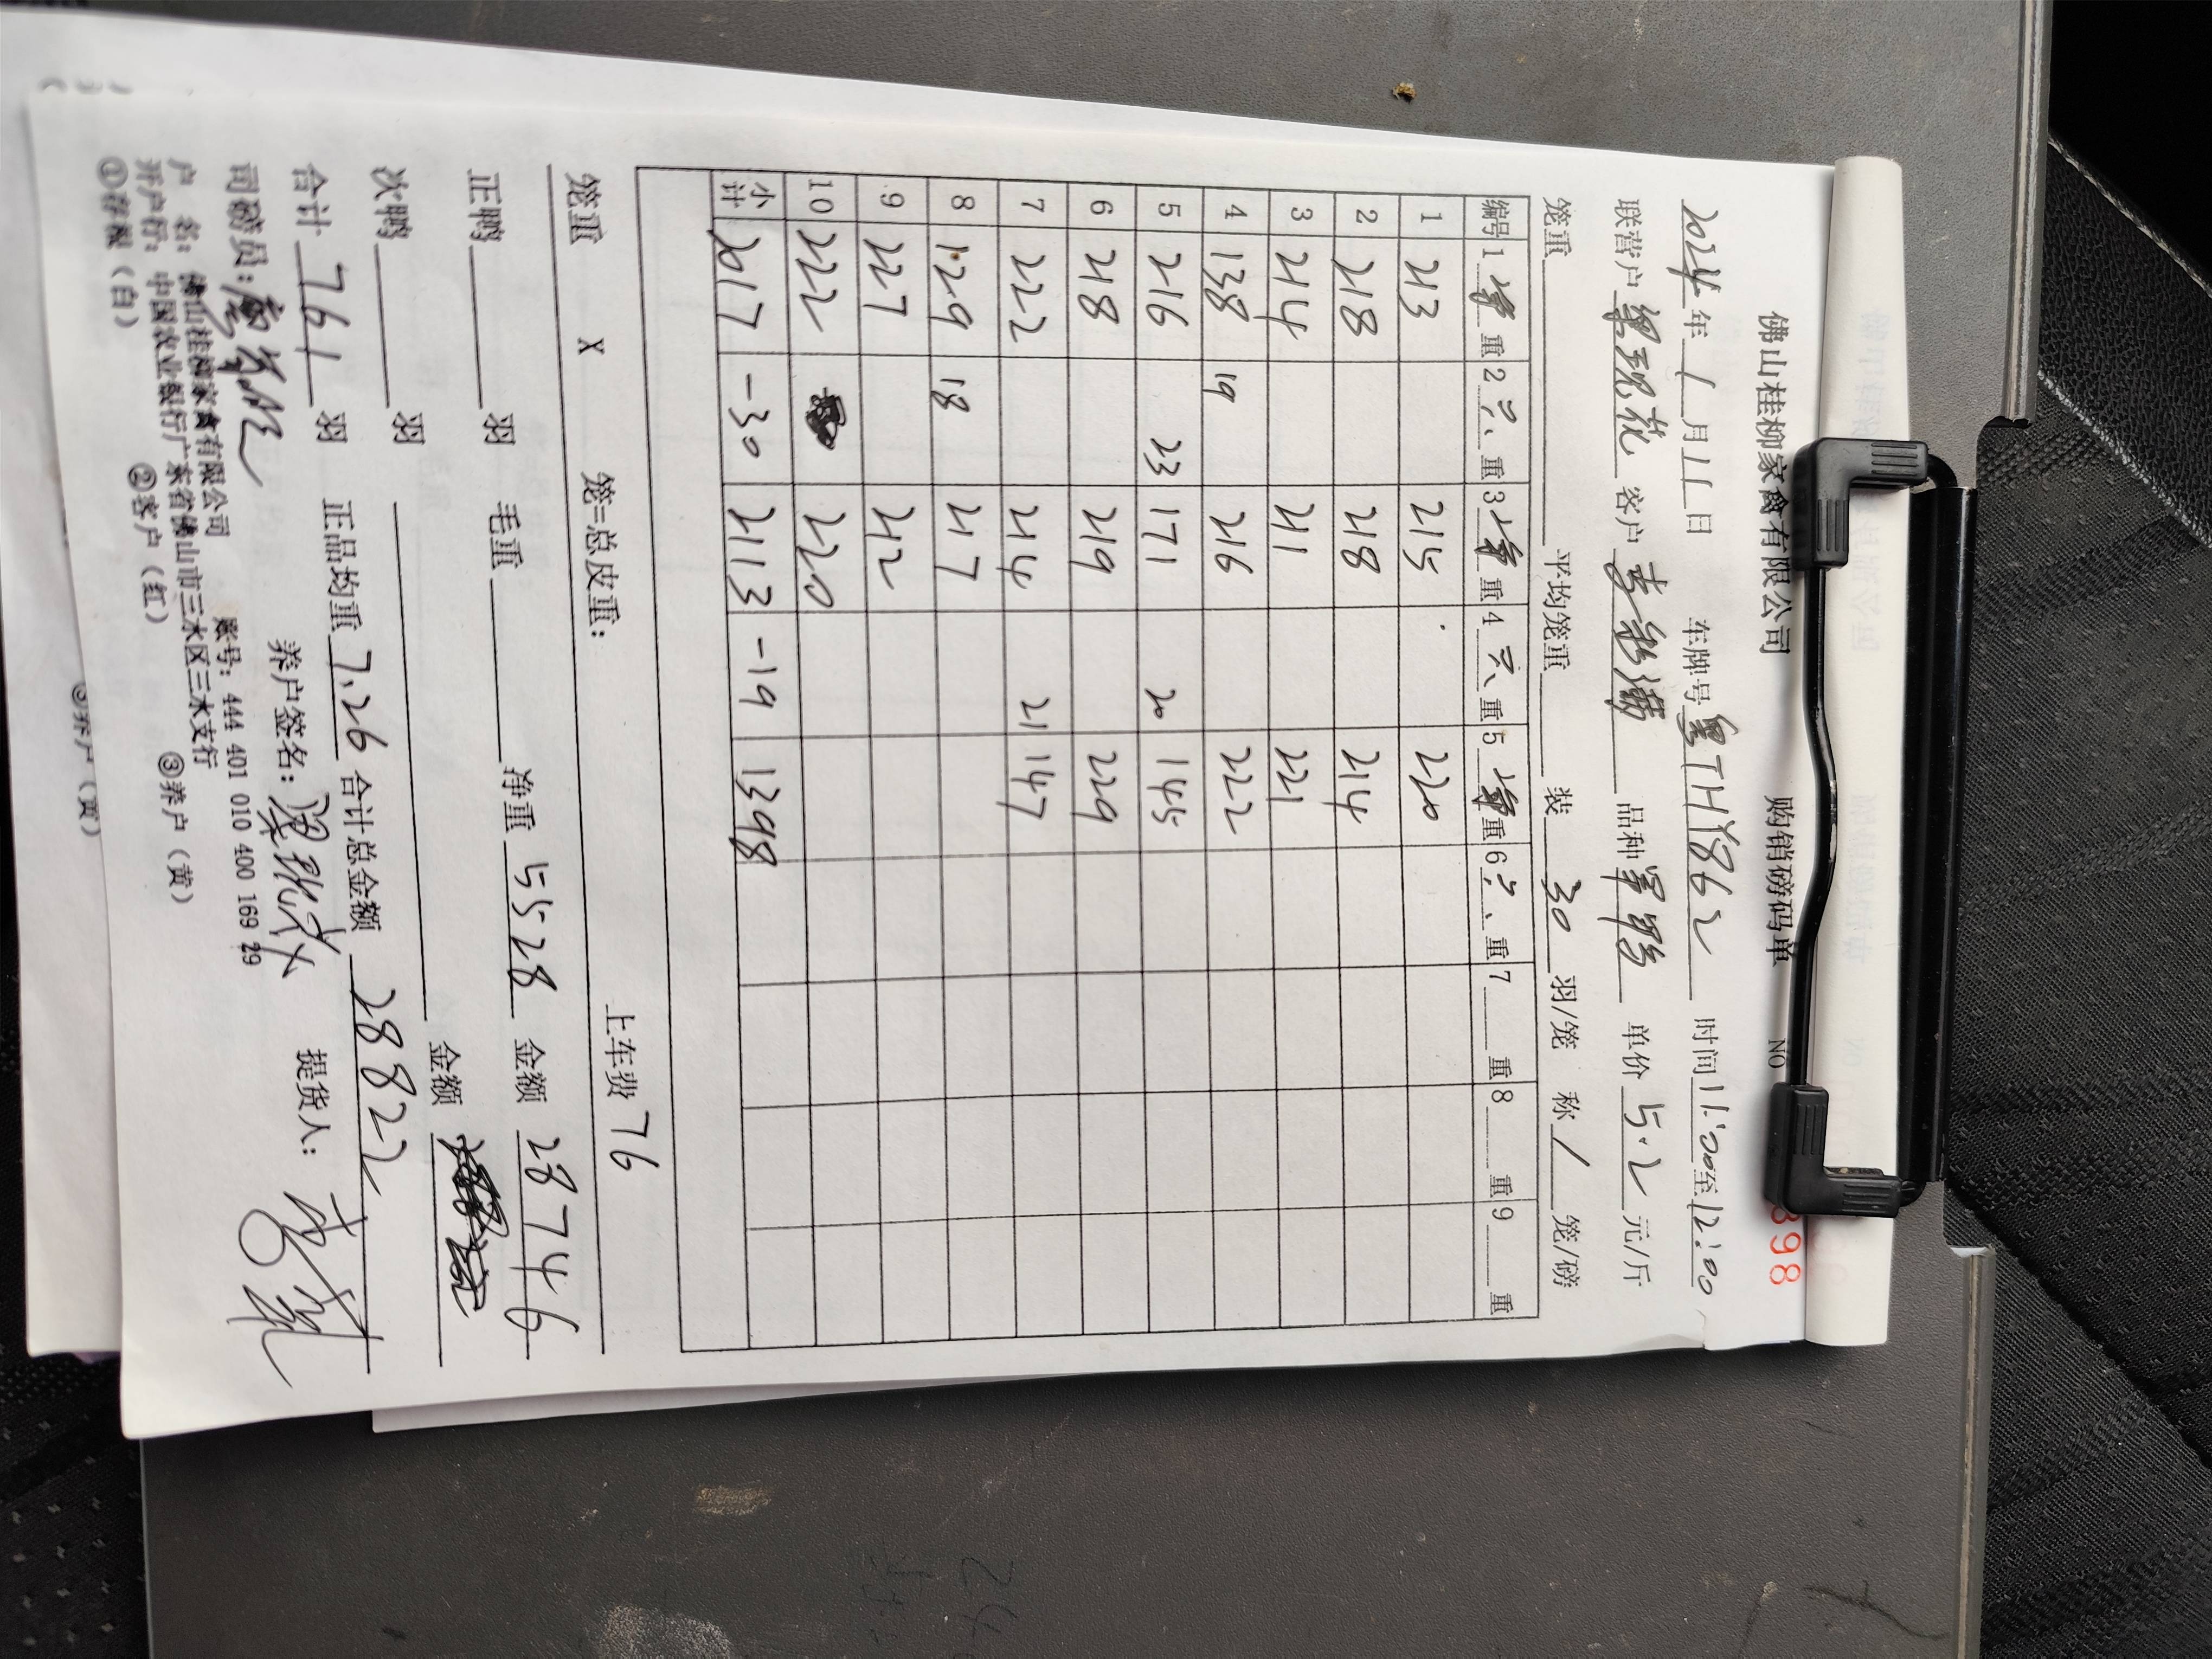 佛山桂柳家禽有限公司 购销磅码单 NO 898
2024年1月11日 车牌号粤THY862 时间11:00至12:00
联营户 客户 品种 单价5.2元/斤
笼重 平均笼重 装30羽/笼 称/笼/磅
编号 1净重 2只、重 3净重 4只、重 5净重 6只、重 7重 8重 9重
1 213 215 220
2 218 218 214
3 214 211 221
4 138 19 216 222
5 216 23 171 20 145
6 218 219 229
7 222 214 21 147
8 129 18 217
9 227 212
10 222 220
小计 2017 -30 2113 -19 1398
上车费76
笼重 X 笼=总皮重:
正鸭 羽 毛重 净重5528 金额28746
次鸭 羽 金额
合计761羽 正品均重7.26 合计总金额28822
司磅员: 养户签名: 提货人:
户 名: 佛山桂柳家禽有限公司 账号: 444 401 010 400 169 29
开户行: 中国农业银行广东省佛山市三水区三水支行
①存根(白) ②客户(红) ③养户(黄)
③养户(黄)